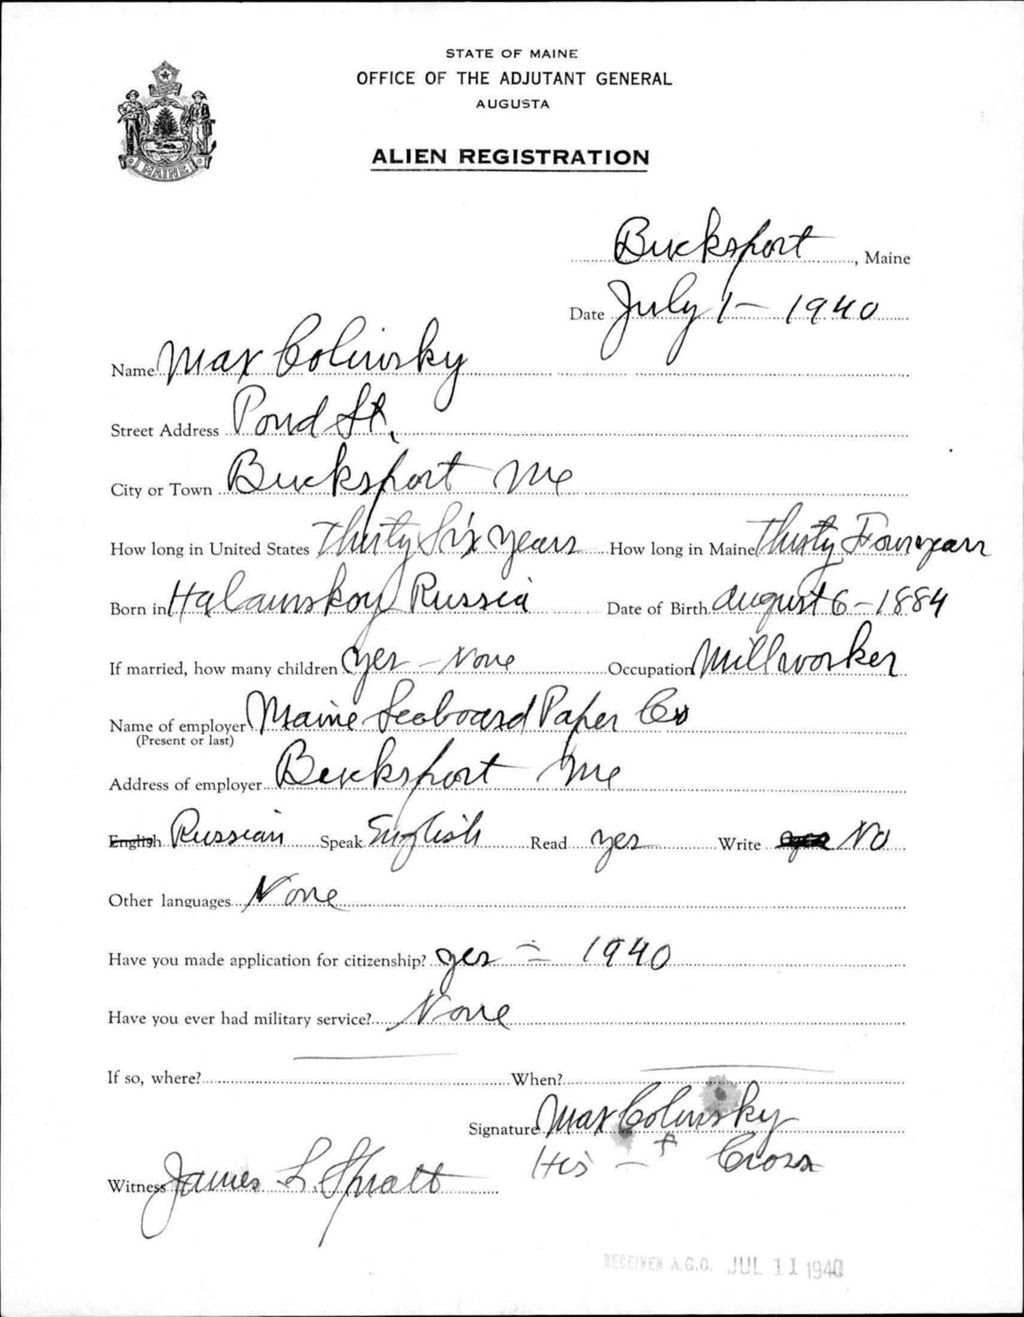 STATE OF MAINE
OFFICE OF THE ADJUTANT GENERAL
AUGUSTA
ALIEN REGISTRATION
MAINE
Bucksport, Maine
Date July 1 - 1940
Name Max Colinsky
Street Address Pond St.
City or Town Bucksport Me
How long in United States Thirty Six years How long in Maine Thirty Four years
Born in Russia Date of Birth August 6 - 1884
If married, how many children yes - None Occupation Millworker
Name of employer Maine Seaboard Paper Co
(Present or last)
Address of employer Bucksport Me
English Russian Speak English Read yes Write No
Other languages None
Have you made application for citizenship? yes - 1940
Have you ever had military service? None
If so, where? When?
Signature Max Colinsky
His - + Cross
Witness James L. Spratt
RECEIVED A.G.O. JUL 11 1940